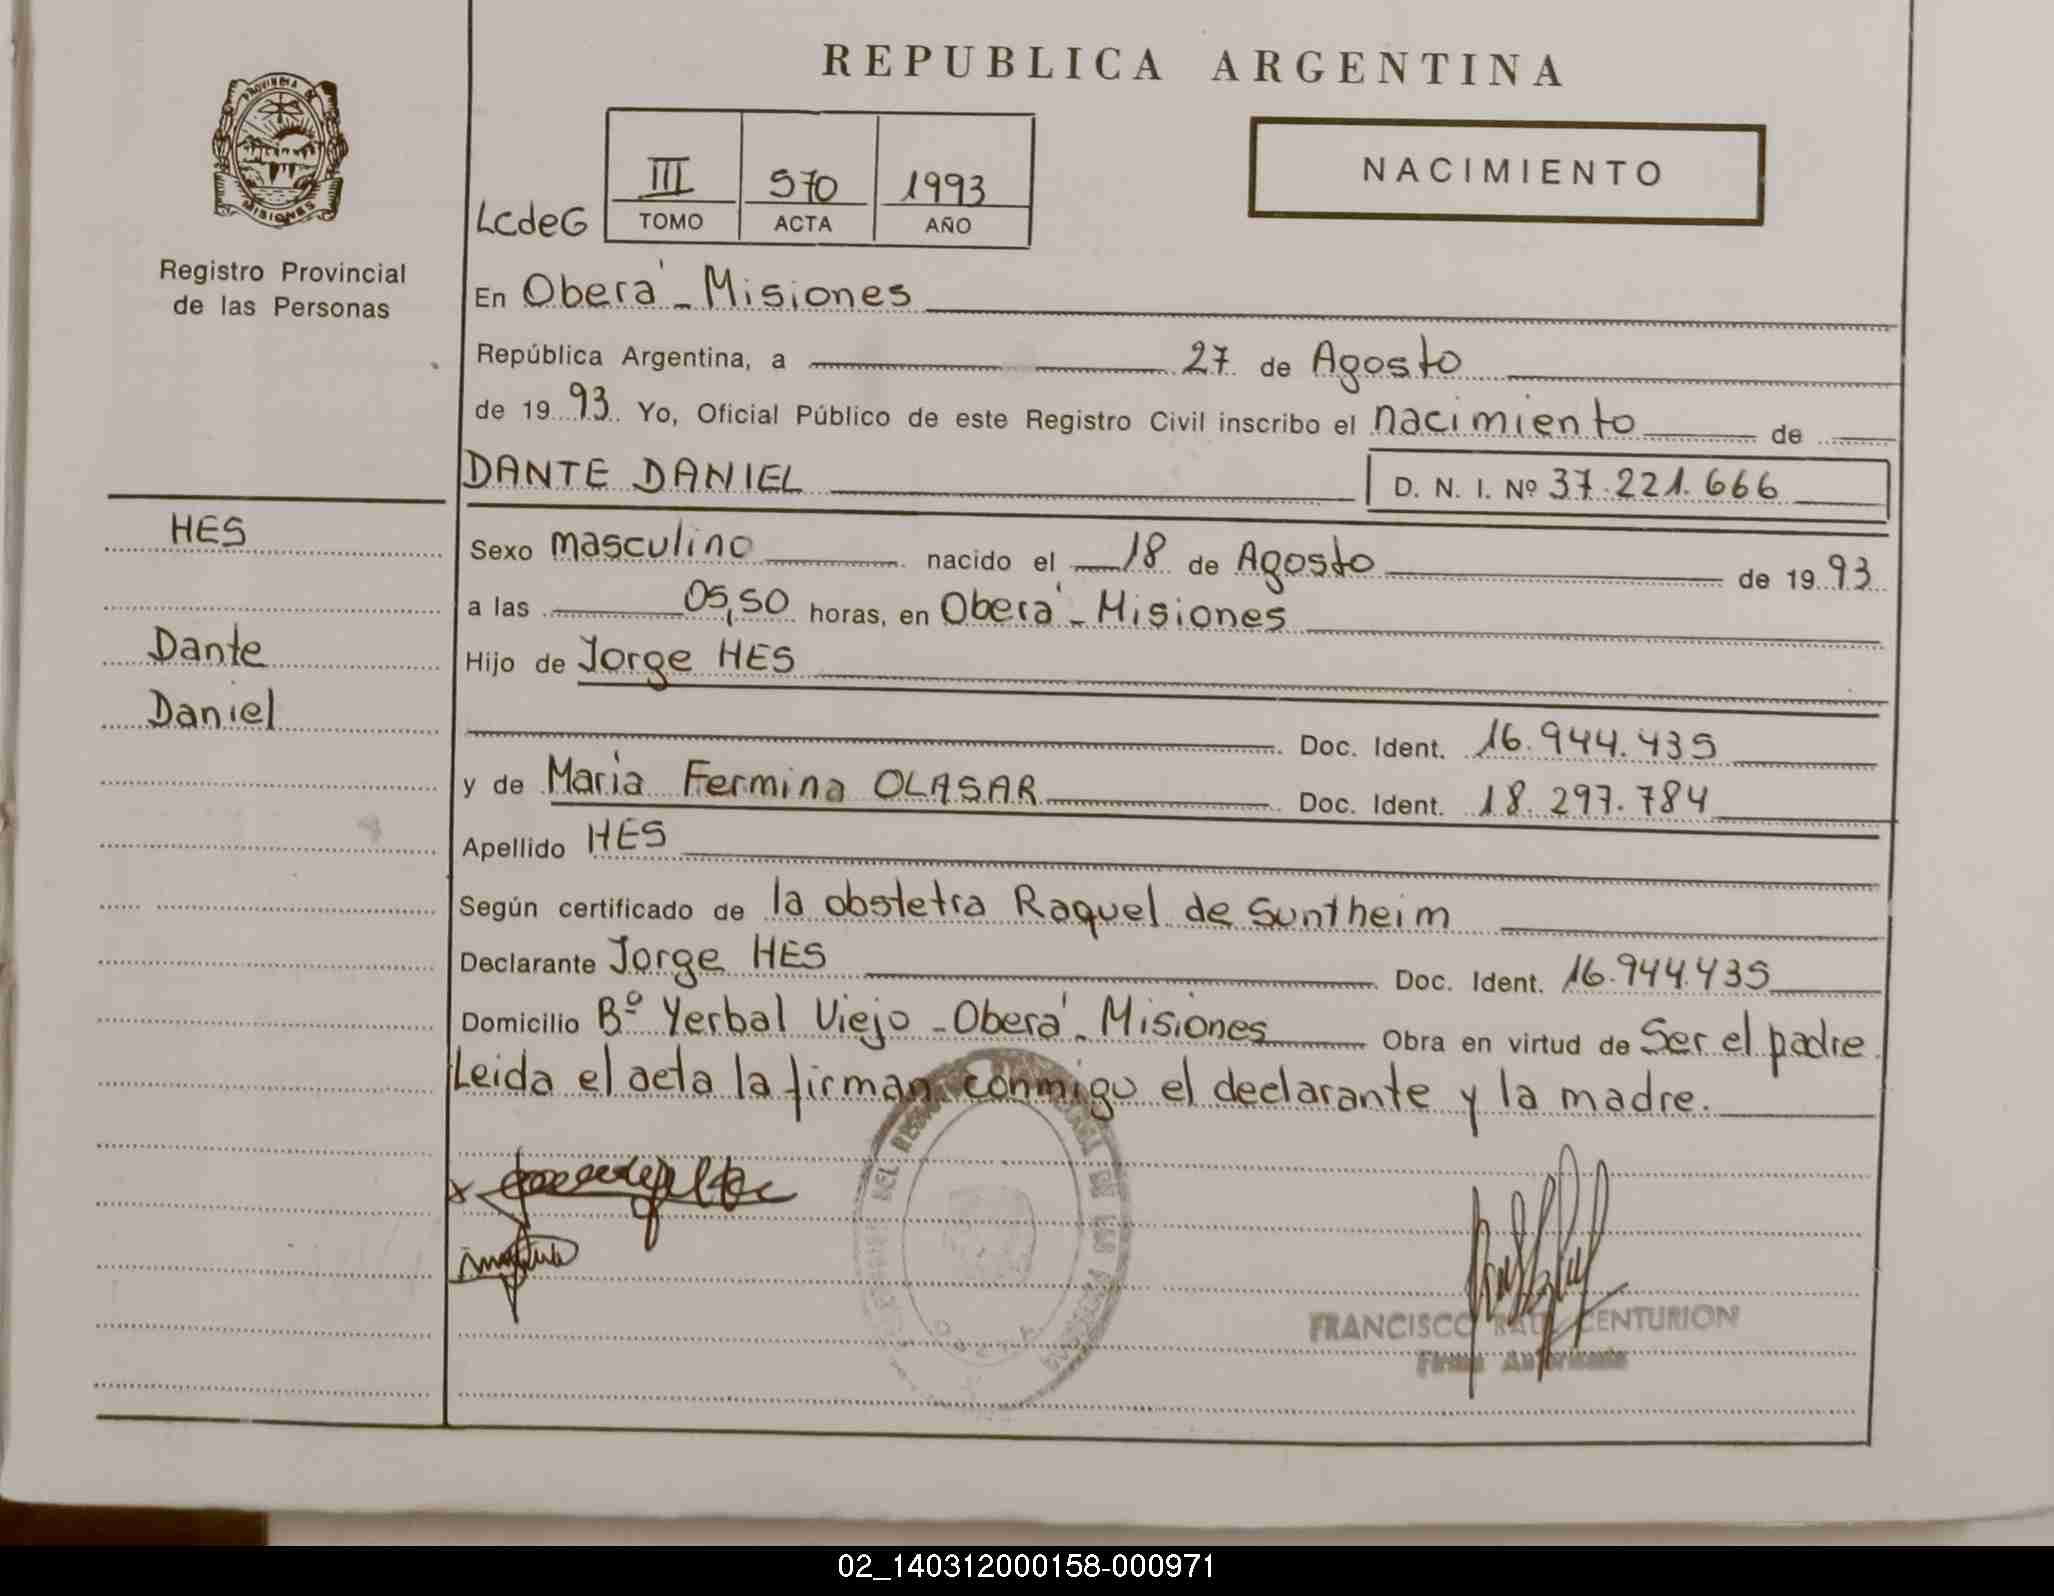 REPUBLICA ARGENTINA
PROVINCIA DE
MISIONES
Registro Provincial
de las Personas
LCdeG
III 570 1993
TOMO ACTA AÑO
NACIMIENTO
En Oberá - Misiones
República Argentina, a 27 de Agosto
de 1993 Yo, Oficial Público de este Registro Civil inscribo el nacimiento de
DANTE DANIEL D. N. I. Nº 37.221.666
HES
Dante
Daniel
Sexo masculino nacido el 18 de Agosto de 1993
a las 05,50 horas, en Oberá - Misiones
Hijo de Jorge HES
Doc. Ident. 16.944.435
y de Maria Fermina OLASAR Doc. Ident. 18.297.784
Apellido HES
Según certificado de la obstetra Raquel de Suntheim
Declarante Jorge HES Doc. Ident. 16.944.435
Domicilio Bº Yerbal Viejo - Oberá - Misiones Obra en virtud de Ser el padre.
Leida el acta la firman conmigo el declarante y la madre.
DEL
DE LAS
FRANCISCO RAUL CENTURION
Firma Autorizada
02_140312000158-000971